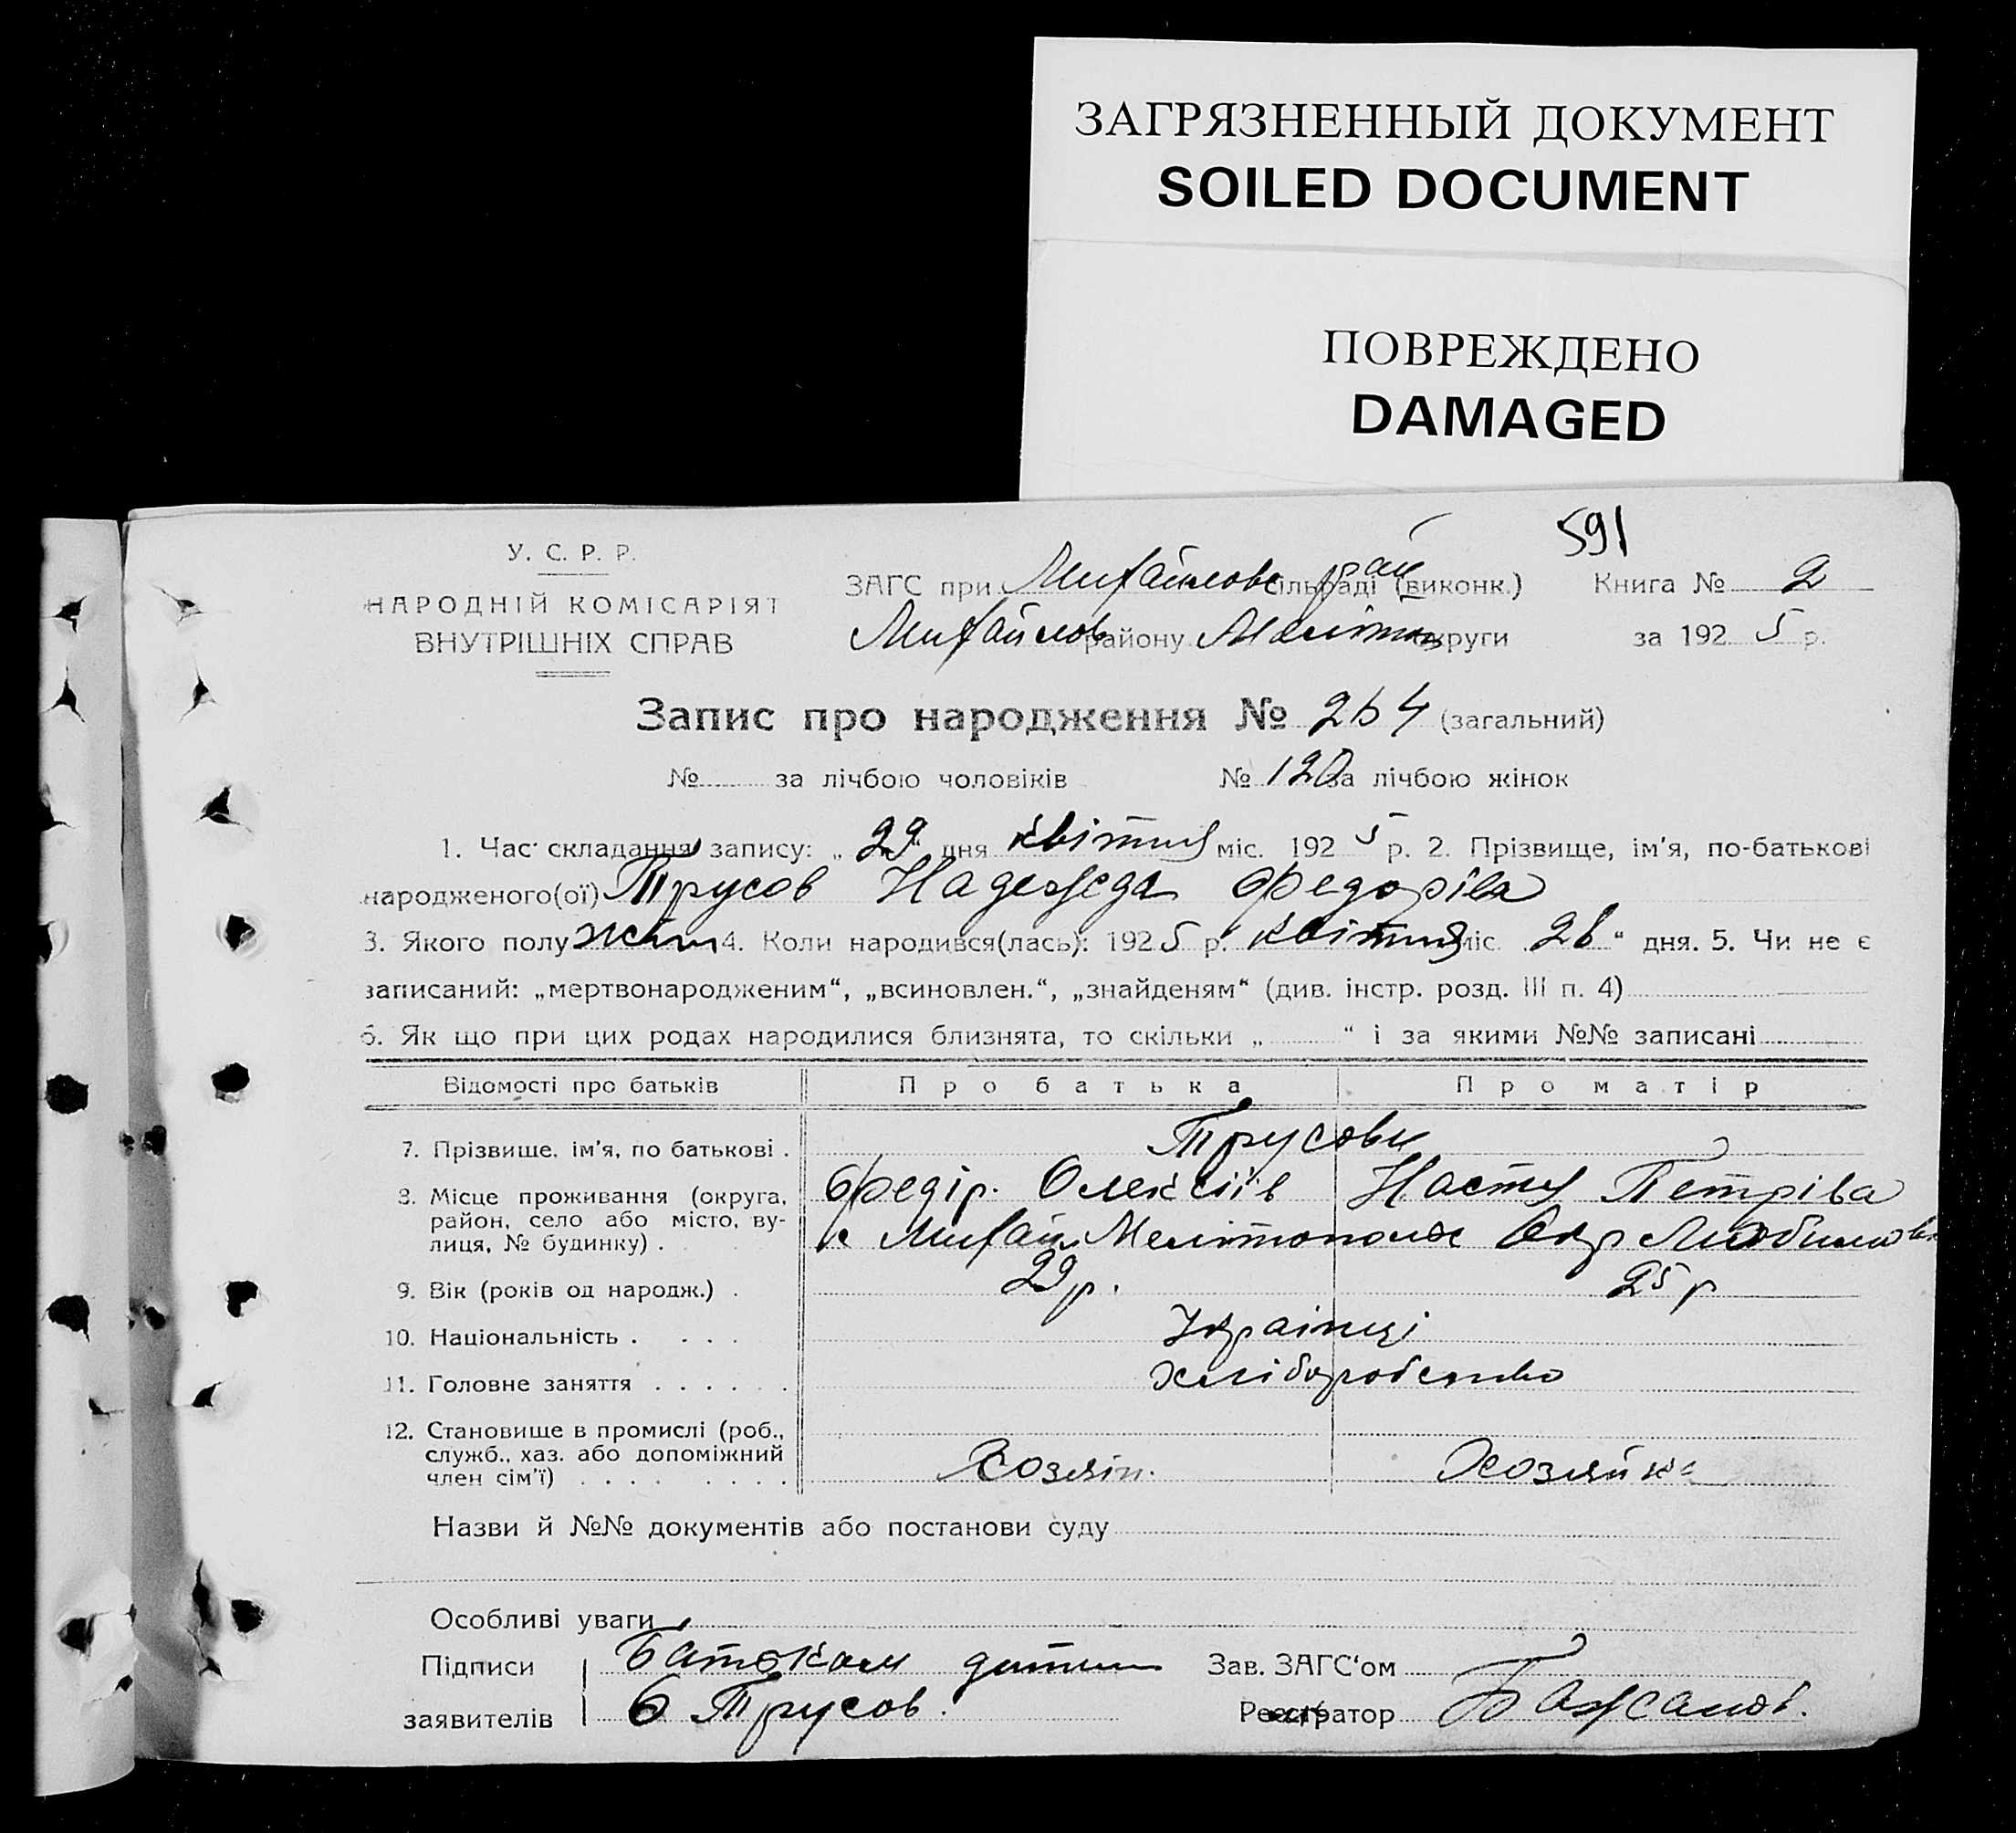 ЗАГРЯЗНЕННЫЙ ДОКУМЕНТ
SOILED DOCUMENT
ПОВРЕЖДЕНО
DAMAGED
591
У. С. Р. Р.
НАРОДНІЙ КОМІСАРІЯТ
ВНУТРІШНІХ СПРАВ
ЗАГС при Михайловс рай сільраді (виконк.) Книга № 2
Михайлов району Меліт округи за 1925 р.
Запис про народження № 264 (загальний)
№ за лічбою чоловіків № 120 за лічбою жінок
1. Час складання запису: „29" дня квітня міс. 1925 р. 2. Прізвище, ім'я, по-батькові
народженого(ої) Трусов Надежда Федоріва
3. Якого полу жін 4. Коли народився(лась): 1925 р. квітня міс. 26 “ дня. 5. Чи не є
записаний: „мертвонародженим“, „всиновлен.“, „знайденям“ (див. інстр. розд. III п. 4)
6. Як що при цих родах народилися близнята, то скільки „ “ і за якими №№ записані
Відомості про батьків Про батька Про матір
7. Прізвище, ім'я, по батькові . Трусови
Федір Олексіїв Настя Петріва
8. Місце проживання (округа,
район, село або місто, ву-
лиця, № будинку) . Михай Мелітопольс Окр
9. Вік (років од народж.) . 29 р. 25 р
10. Національність . . . . Українці
11. Головне заняття . . . . . . хліборобство
12. Становище в промислі (роб.,
служб., хаз. або допоміжний
член сім'ї) . . . . . . . . Хозяїн. Хозяйка
Назви й №№ документів або постанови суду
Особливі уваги
Підписи Батьком дитини Зав. ЗАГС‘ом
заявителів Ф Трусов. Реєстратор Бажанов.